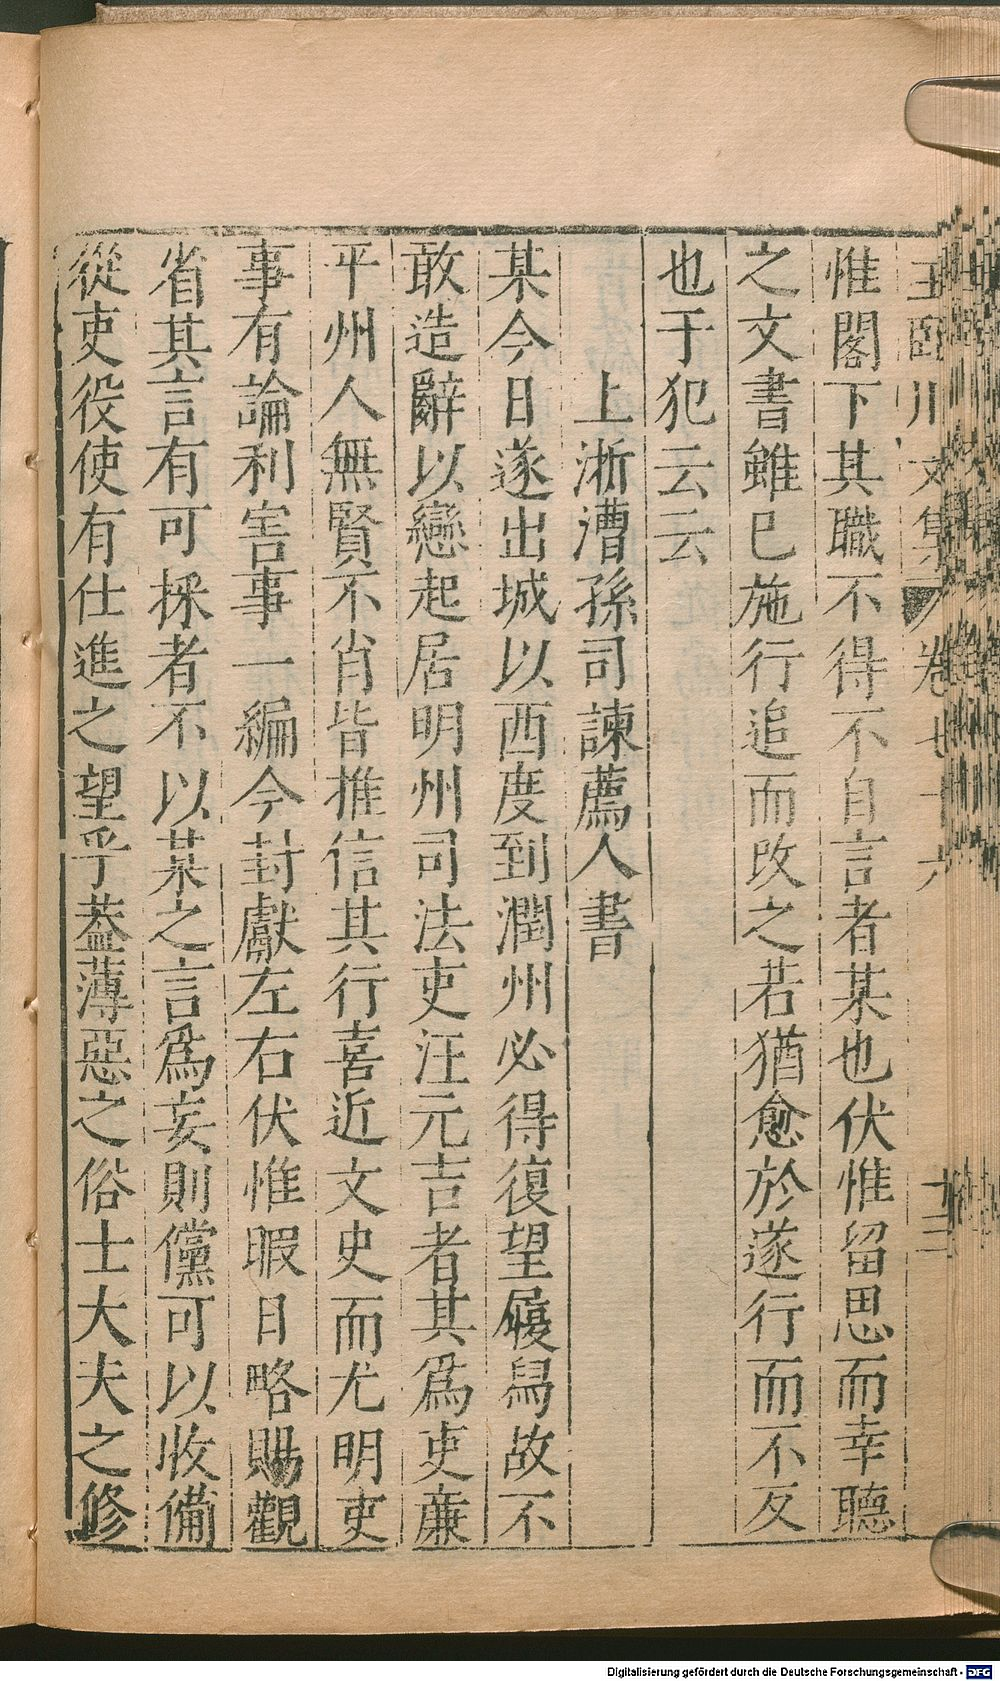 王臨川文集 卷七十六 十三
惟閣下其職不得不自言者某也伏惟留思而幸聽
之文書雖已施行追而改之若猶愈於遂行而不反
也于犯云云
上浙漕孫司諫薦人書
某今日遂出城以西度到潤州必得復望履舄故不
敢造辭以戀起居明州司法吏汪元吉者其爲吏廉
平州人無賢不肖皆推信其行喜近文史而尤明吏
事有論利害事一編今封獻左右伏惟暇日略賜觀
省其言有可採者不以某之言爲妄則儻可以收備
從吏役使有仕進之望乎葢薄惡之俗士大夫之修
Digitalisierung gefördert durch die Deutsche Forschungsgemeinschaft - DFG